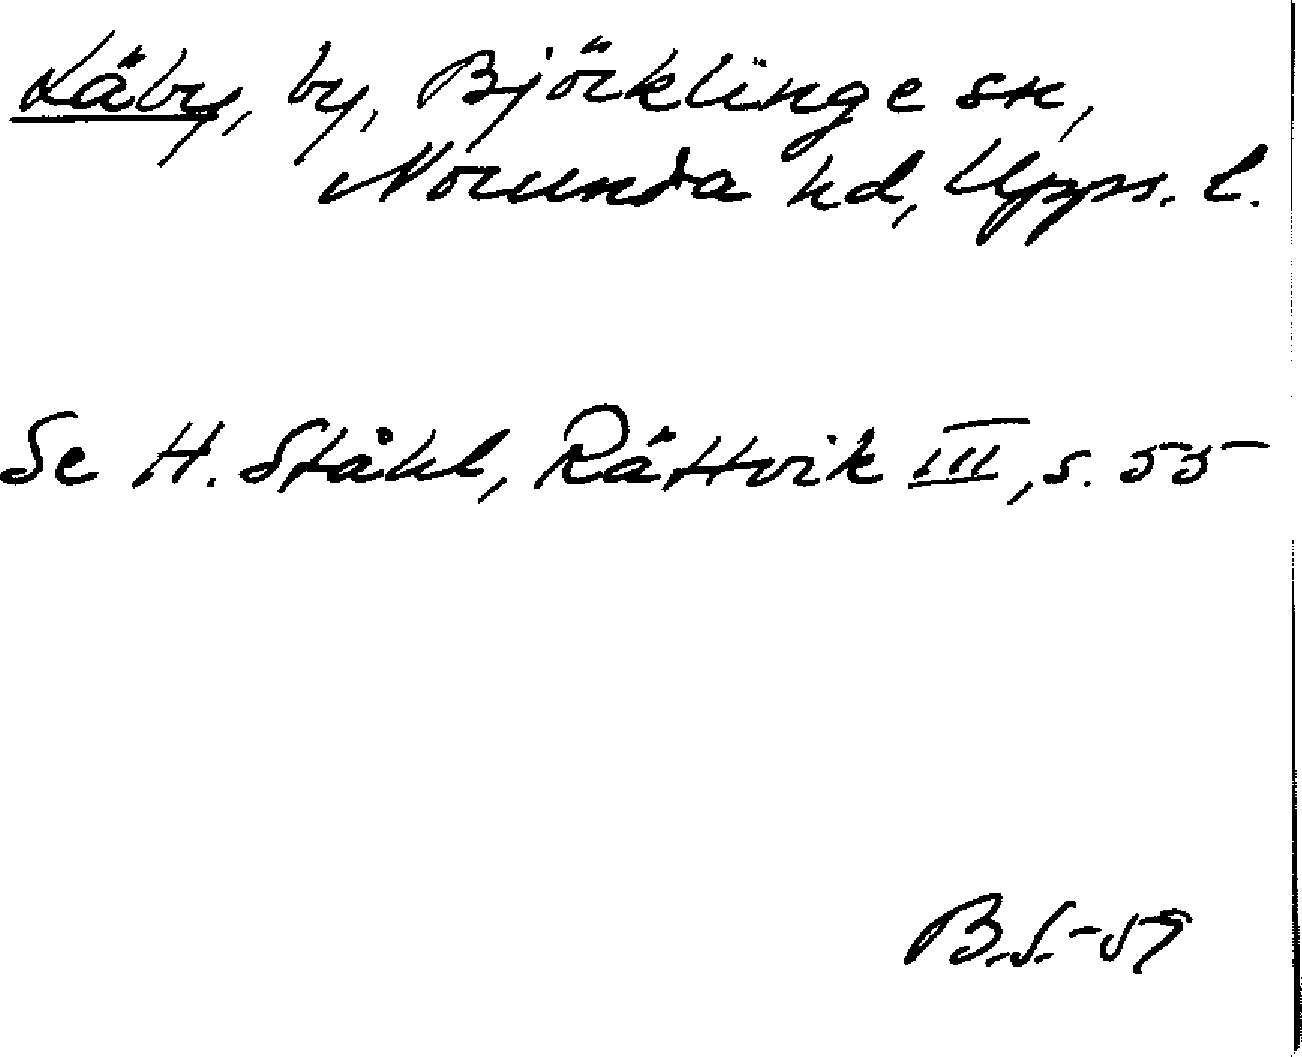 Läby, by, Björklinge sn,
Norunda hd, Upps. l.
Se H. Ståhl, Rättvik III, s. 55
B.S.-59